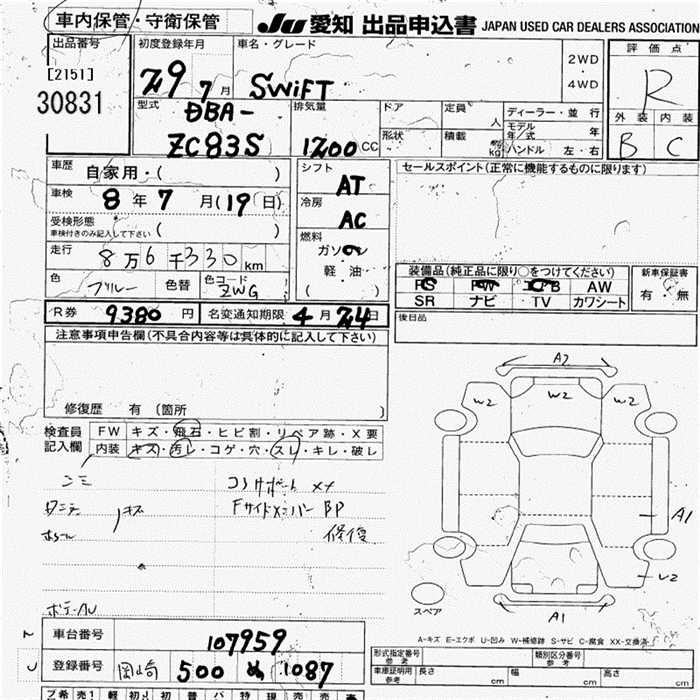 車内保管・守衛保管
JU 愛知 出品申込書 JAPAN USED CAR DEALERS ASSOCIATION
出品番号 初度登録年月 車名・グレード 2WD 4WD 評価点
[2151]
30831
29 7月 SWiFT R
型式 DBA-ZC83S 排気量 1200 CC ドア 形状 定員 人 積載 kg ディーラー・並行 モデル年/式 年 ハンドル 左・右
外装 内装
B C
車歴 自家用・( )
車検 8年 7月(19日)
受検形態 車検付きのみ記入して下さい ( )
走行 8万6千330km
色 ブルー 色替 色コード ZWG
シフト AT
冷房 AC
燃料 ガソリン 軽・油 ( )
セールスポイント(正常に機能するものに限ります)
装備品(純正品に限り○をつけてください) 新車保証書
PS PW AW 有・無
SR ナビ TV カワシート
後日品
R券 9380円 名変通知期限 4月24日
注意事項申告欄(不具合内容等は具体的に記入して下さい)
修復歴 有 〔箇所 〕
検査員記入欄 FW キズ・飛石・ヒビ割・リペア跡・X要
内装 キズ・汚レ・コゲ・穴・スレ・キレ・破レ
コアサポート XX
FサイドメンバーBP
修復
A2
W2 W2 W2
A1
U2
A1
スペア
A-キズ E-エクボ U-凹み W-補修跡 S-サビ C-腐食 XX-交換済
車台番号 107959
登録番号 岡崎 500 ぬ 1087
形式指定番号 参考 類別区分番号 参考
車庫証明用 参考 長さ cm 幅 cm 高さ cm